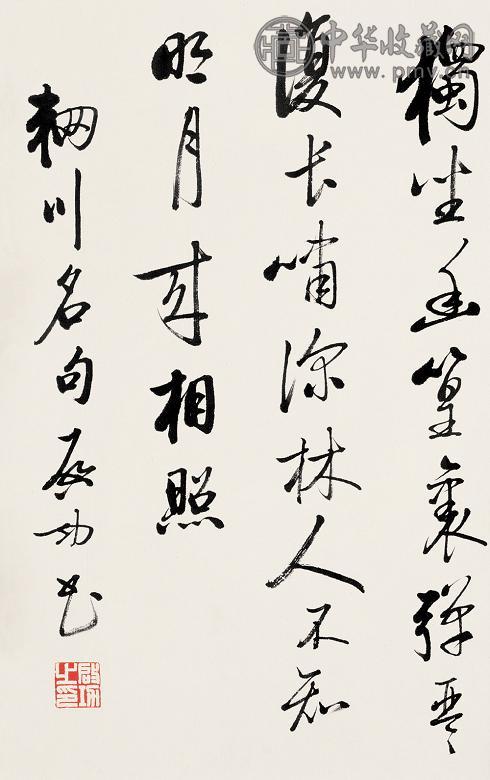 獨坐幽篁裏彈琴
復长嘯深林人不知
明月来相照
輞川名句 启功书
啟功之印
中华收藏网
www.pmv.cn